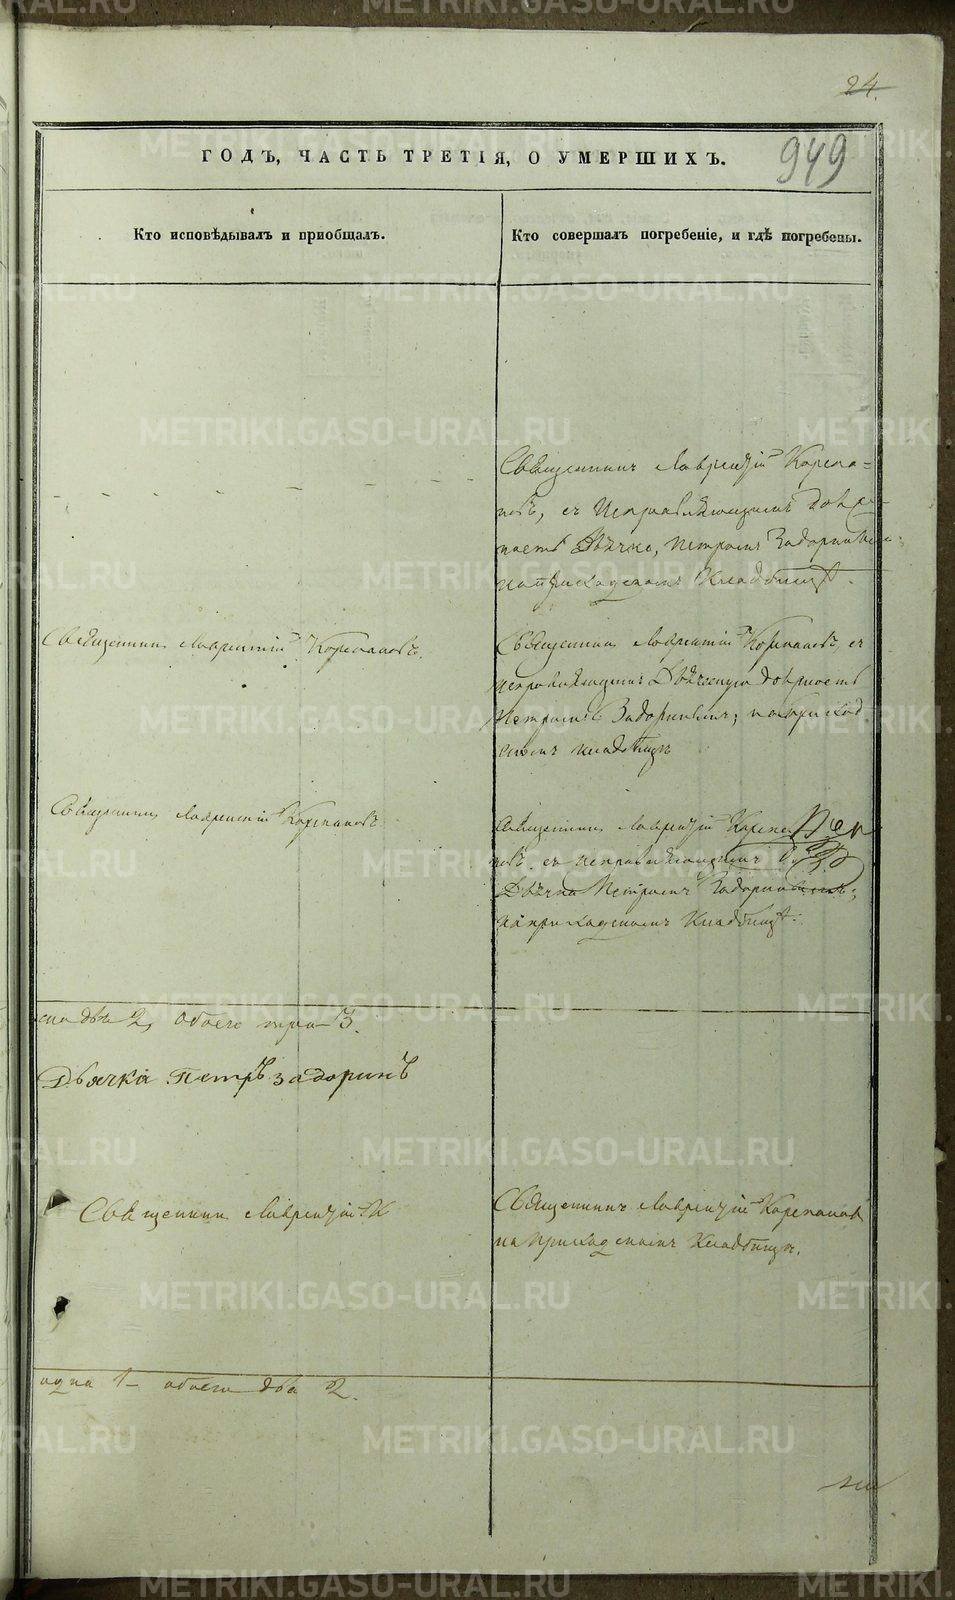 24.
949
ГОДЪ, ЧАСТЬ ТРЕТІЯ, О УМЕРШИХЪ.
Кто исповѣдывалъ и приобщалъ.
Кто совершалъ погребеніе, и гдѣ погребены.
Священникъ Лаврентій Корепа=
новъ, съ Исправляющимъ долж-
ность Дьячка, Петромъ Задоринымъ
на приходскомъ Кладбищѣ.
Священникъ Лаврентій Корепановъ.
Священникъ Лаврентій Корепановъ, съ
исправляющимъ Дьяческую должность
Петромъ Задоринымъ; на приход
скомъ кладбищѣ
Священникъ Лаврентій Корепановъ
Священникъ Лаврентій Корепа
новъ, съ исправляющимъ
Дьячка Петромъ Задоринымъ;
на приходскомъ Кладбищѣ.
два 2, обоего три 3.
Дьячка Петръ Задоринъ
Священникъ Лаврентій К
Священникъ Лаврентій Корепановъ
на приходскомъ Кладбищѣ.
одна 1 — обоего два 2.
METRIKI.GASO-URAL.RU